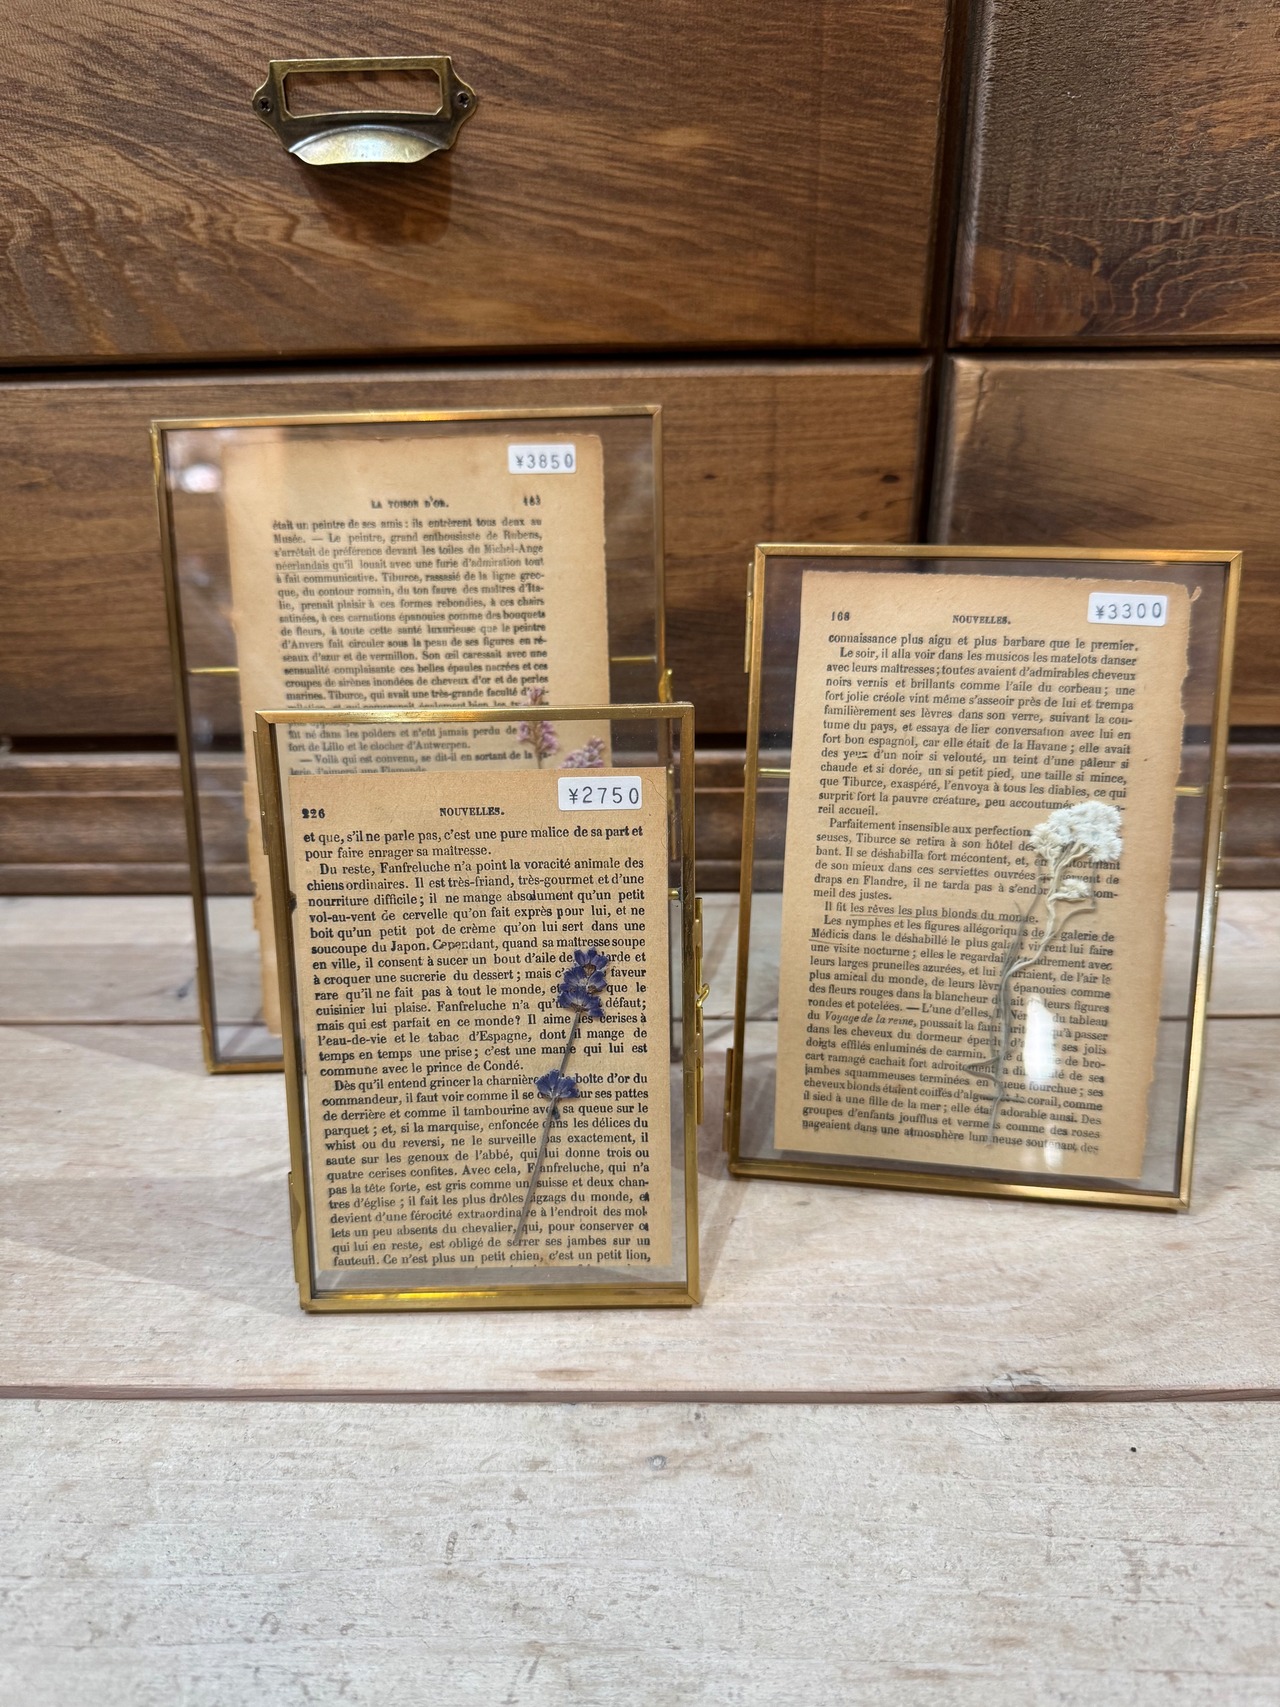 ¥3850
LA TOISON D'OR. 183
était un peintre de ses amis : ils entrèrent tous deux au
Musée. — Le peintre, grand enthousiaste de Rubens,
s'arrêtait de préférence devant les toiles du Michel-Ange
néerlandais qu'il louait avec une furie d'admiration tout
à fait communicative. Tiburce, rassasié de la ligne grec-
que, du contour romain, du ton fauve des maîtres d'Ita-
lie, prenait plaisir à ces formes rebondies, à ces chairs
satinées, à ces carnations épanouies comme des bouquets
de fleurs, à toute cette santé luxurieuse que le peintre
d'Anvers fait circuler sous la peau de ses figures en ré-
seaux d'azur et de vermillon. Son œil caressait avec une
sensualité complaisante ces belles épaules nacrées et ces
croupes de sirènes inondées de cheveux d'or et de perles
marines. Tiburce, qui avait une très-grande faculté
fût né dans les polders et n'eût jamais perdu de
fort de Lillo et le clocher d'Antwerpen.
— Voilà qui est convenu, se dit-il en sortant de la
¥2750
226 NOUVELLES.
et que, s'il ne parle pas, c'est une pure malice de sa part et
pour faire enrager sa maîtresse.
Du reste, Fanfreluche n'a point la voracité animale des
chiens ordinaires. Il est très-friand, très-gourmet et d'une
nourriture difficile ; il ne mange absolument qu'un petit
vol-au-vent de cervelle qu'on fait exprès pour lui, et ne
boit qu'un petit pot de crème qu'on lui sert dans une
soucoupe du Japon. Cependant, quand sa maîtresse soupe
en ville, il consent à sucer un bout d'aile de et
à croquer une sucrerie du dessert ; mais faveur
rare qu'il ne fait pas à tout le monde, et que le
cuisinier lui plaise. Fanfreluche n'a défaut;
mais qui est parfait en ce monde? Il aime les cerises à
l'eau-de-vie et le tabac d'Espagne, dont il mange de
temps en temps une prise ; c'est une manie qui lui est
commune avec le prince de Condé.
Dès qu'il entend grincer la charnière boîte d'or du
commandeur, il faut voir comme il se sur ses pattes
de derrière et comme il tambourine avec sa queue sur le
parquet ; et, si la marquise, enfoncée dans les délices du
whist ou du reversi, ne le surveille pas exactement, il
saute sur les genoux de l'abbé, qui lui donne trois ou
quatre cerises confites. Avec cela, Fanfreluche, qui n'a
pas la tête forte, est gris comme un suisse et deux chan-
tres d'église ; il fait les plus drôles zigzags du monde, et
devient d'une férocité extraordinaire à l'endroit des mol-
lets un peu absents du chevalier, qui, pour conserver ce
qui lui en reste, est obligé de serrer ses jambes sur un
fauteuil. Ce n'est plus un petit chien, c'est un petit lion,
¥3300
168 NOUVELLES.
connaissance plus aigu et plus barbare que le premier.
Le soir, il alla voir dans les musicos les matelots danser
avec leurs maîtresses ; toutes avaient d'admirables cheveux
noirs vernis et brillants comme l'aile du corbeau ; une
fort jolie créole vint même s'asseoir près de lui et trempa
familièrement ses lèvres dans son verre, suivant la cou-
tume du pays, et essaya de lier conversation avec lui en
fort bon espagnol, car elle était de la Havane ; elle avait
des yeux d'un noir si velouté, un teint d'une pâleur si
chaude et si dorée, un si petit pied, une taille si mince,
que Tiburce, exaspéré, l'envoya à tous les diables, ce qui
surprit fort la pauvre créature, peu accoutumée
reil accueil.
Parfaitement insensible aux perfections
seuses, Tiburce se retira à son hôtel des
bant. Il se déshabilla fort mécontent, et, en
de son mieux dans ces serviettes ouvrées servent de
draps en Flandre, il ne tarda pas à s'endormir som-
meil des justes.
Il fit les rêves les plus blonds du monde.
Les nymphes et les figures allégoriques de la galerie de
Médicis dans le déshabillé le plus galant vinrent lui faire
une visite nocturne ; elles le regardaient tendrement avec
leurs larges prunelles azurées, et lui souriaient, de l'air le
plus amical du monde, de leurs lèvres épanouies comme
des fleurs rouges dans la blancheur de lait de leurs figures
rondes et potelées. — L'une d'elles, la Néréide du tableau
du Voyage de la reine, poussait la familiarité jusqu'à passer
dans les cheveux du dormeur éperdu ses jolis
doigts effilés enluminés de carmin. de bro-
cart ramagé cachait fort adroitement la difformité de ses
jambes squammeuses terminées en queue fourchue ; ses
cheveux blonds étaient coiffés d'algues de corail, comme
il sied à une fille de la mer ; elle était adorable ainsi. Des
groupes d'enfants joufflus et vermeils comme des roses
nageaient dans une atmosphère lumineuse soutenant des